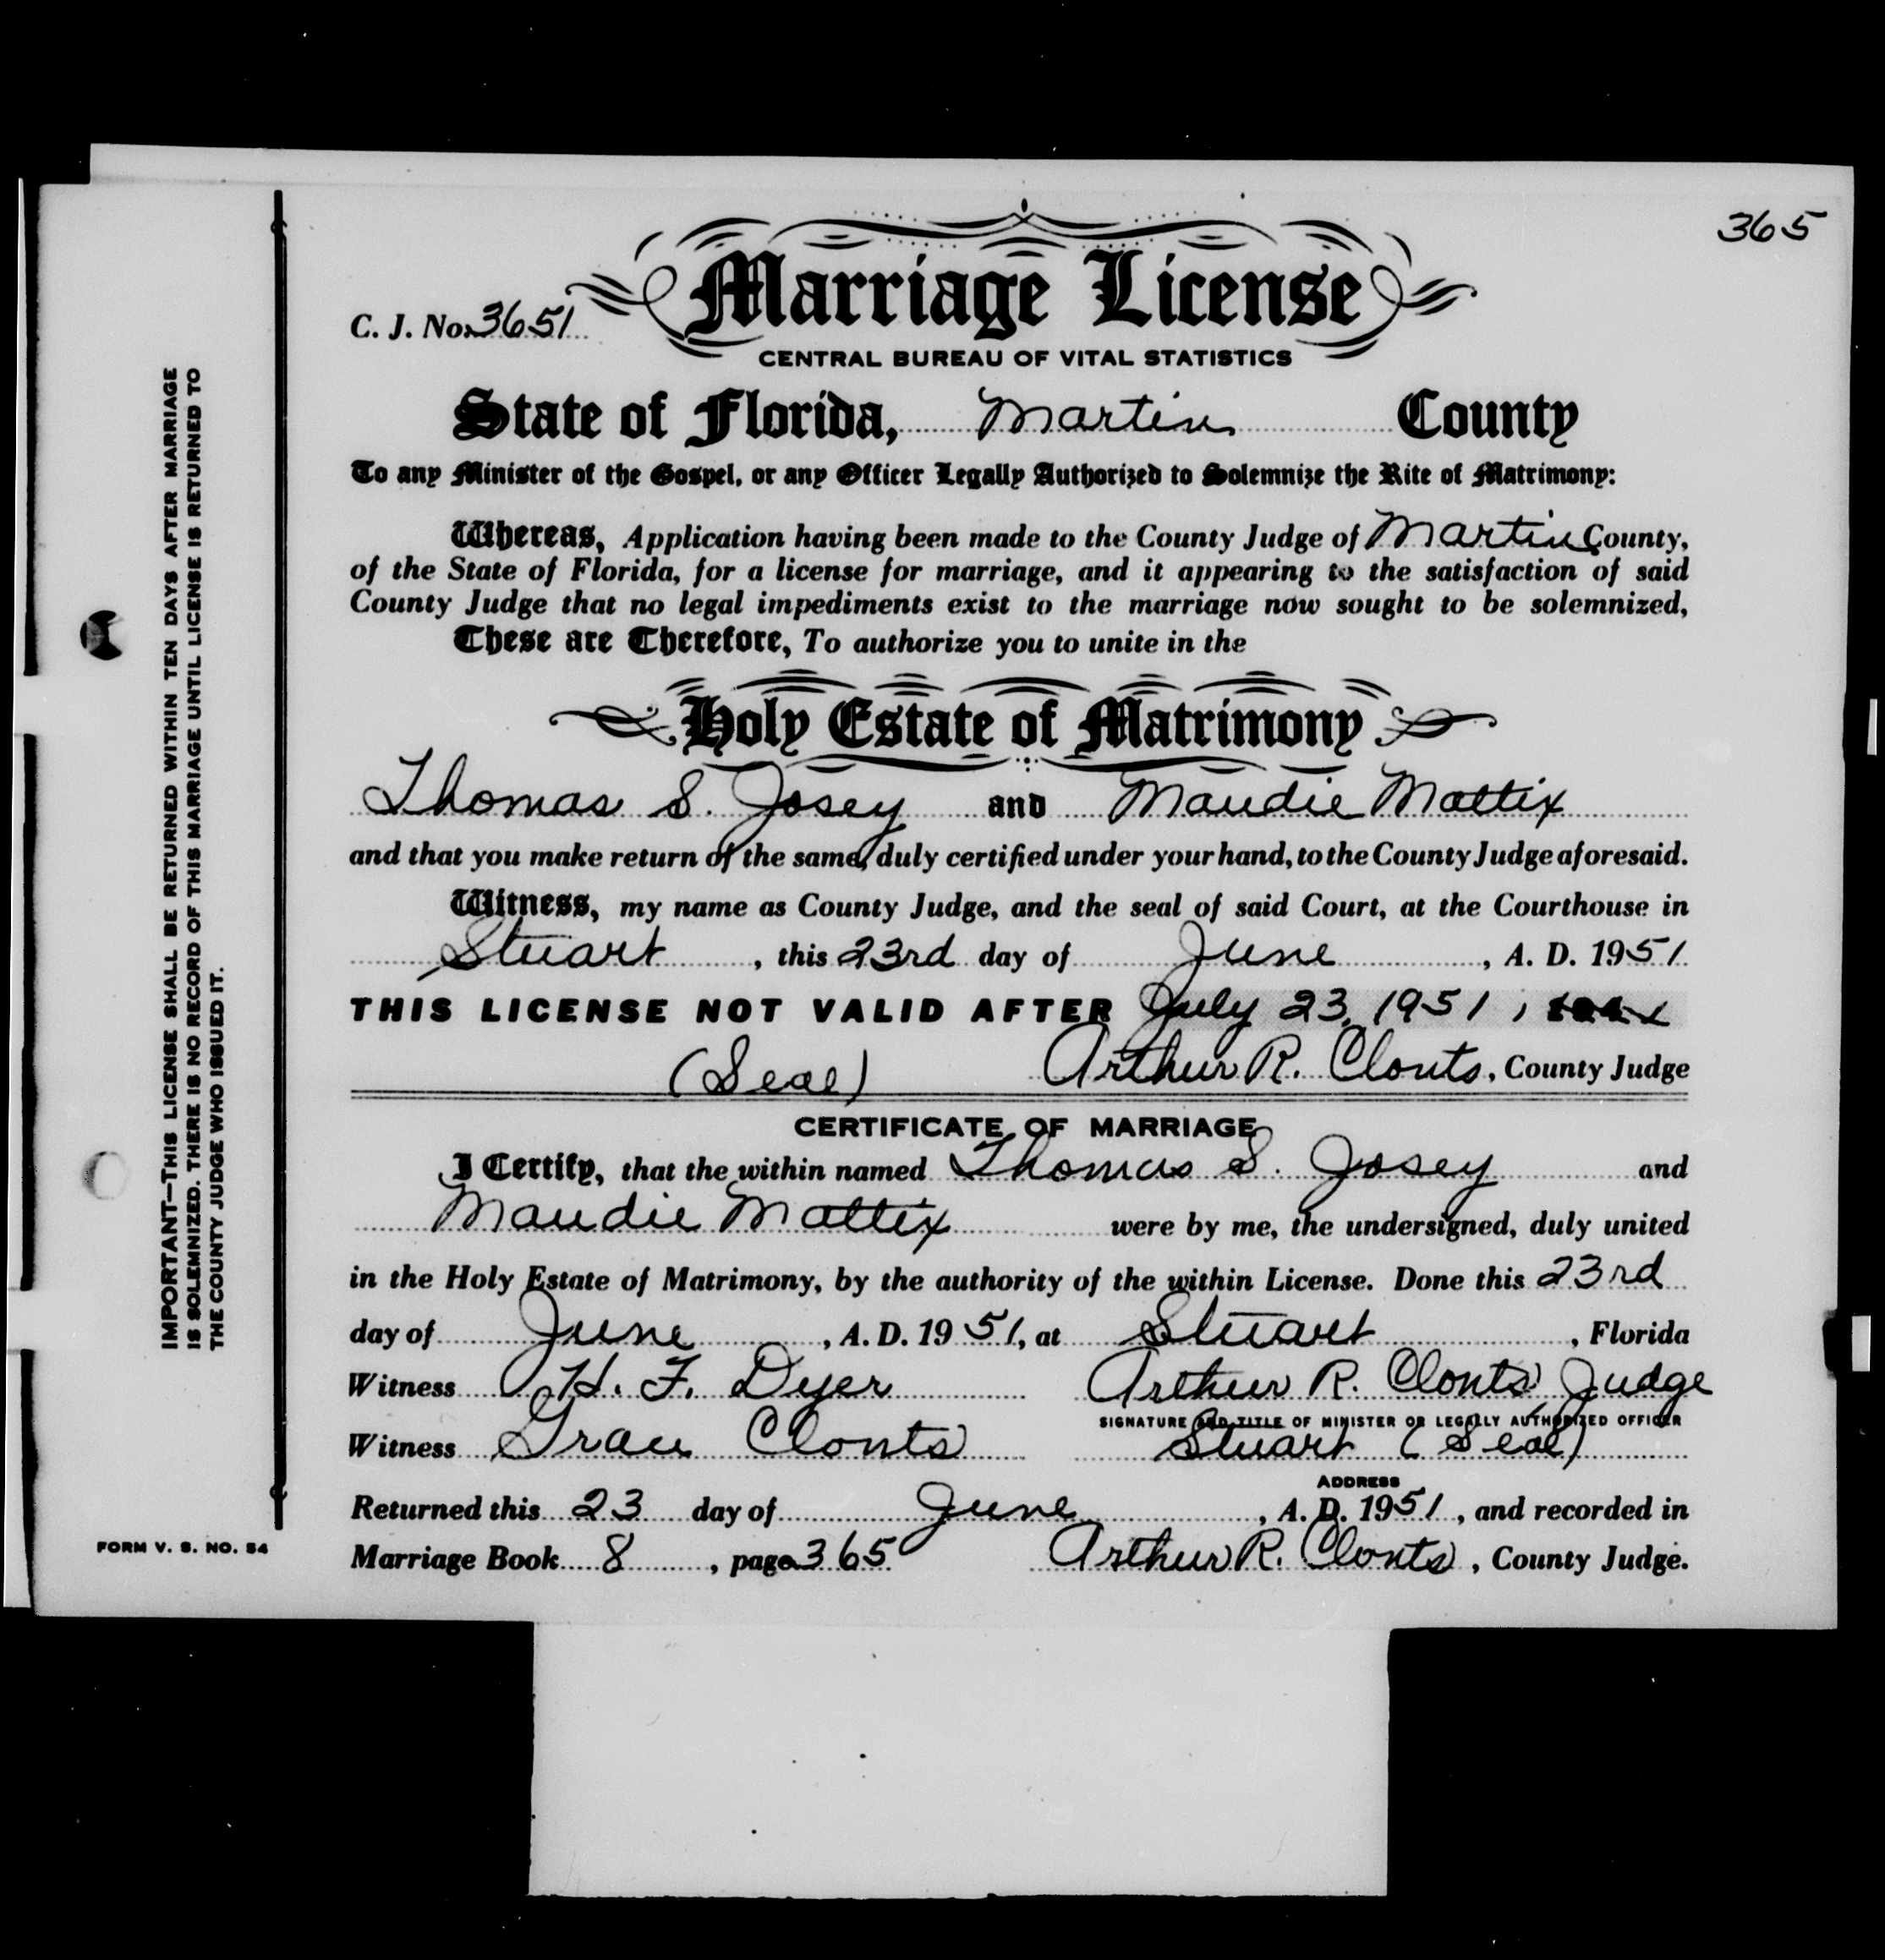 365
Marriage License
C. J. No. 3651
CENTRAL BUREAU OF VITAL STATISTICS
State of Florida, Martin County
To any Minister of the Gospel, or any Officer Legally Authorized to Solemnize the Rite of Matrimony:
Whereas, Application having been made to the County Judge of Martin County,
of the State of Florida, for a license for marriage, and it appearing to the satisfaction of said
County Judge that no legal impediments exist to the marriage now sought to be solemnized,
These are Therefore, To authorize you to unite in the
Holy Estate of Matrimony
Thomas S. Josey and Maudie Mattix
and that you make return of the same, duly certified under your hand, to the County Judge aforesaid.
Witness, my name as County Judge, and the seal of said Court, at the Courthouse in
Stuart, this 23rd day of June, A. D. 1951
THIS LICENSE NOT VALID AFTER July 23, 1951,
(Seal) Arthur R. Clonts, County Judge
CERTIFICATE OF MARRIAGE
I Certify, that the within named Thomas S. Josey and
Maudie Mattix were by me, the undersigned, duly united
in the Holy Estate of Matrimony, by the authority of the within License. Done this 23rd
day of June, A. D. 1951, at Stuart, Florida
Witness H. F. Dyer Arthur R. Clonts, Judge
SIGNATURE AND TITLE OF MINISTER OR LEGALLY AUTHORIZED OFFICER
Witness Grace Clonts Stuart (Seal)
ADDRESS
Returned this 23 day of June, A. D. 1951, and recorded in
Marriage Book 8, page 365 Arthur R. Clonts, County Judge.
IMPORTANT—THIS LICENSE SHALL BE RETURNED WITHIN TEN DAYS AFTER MARRIAGE
IS SOLEMNIZED. THERE IS NO RECORD OF THIS MARRIAGE UNTIL LICENSE IS RETURNED TO
THE COUNTY JUDGE WHO ISSUED IT.
FORM V. S. NO. 54